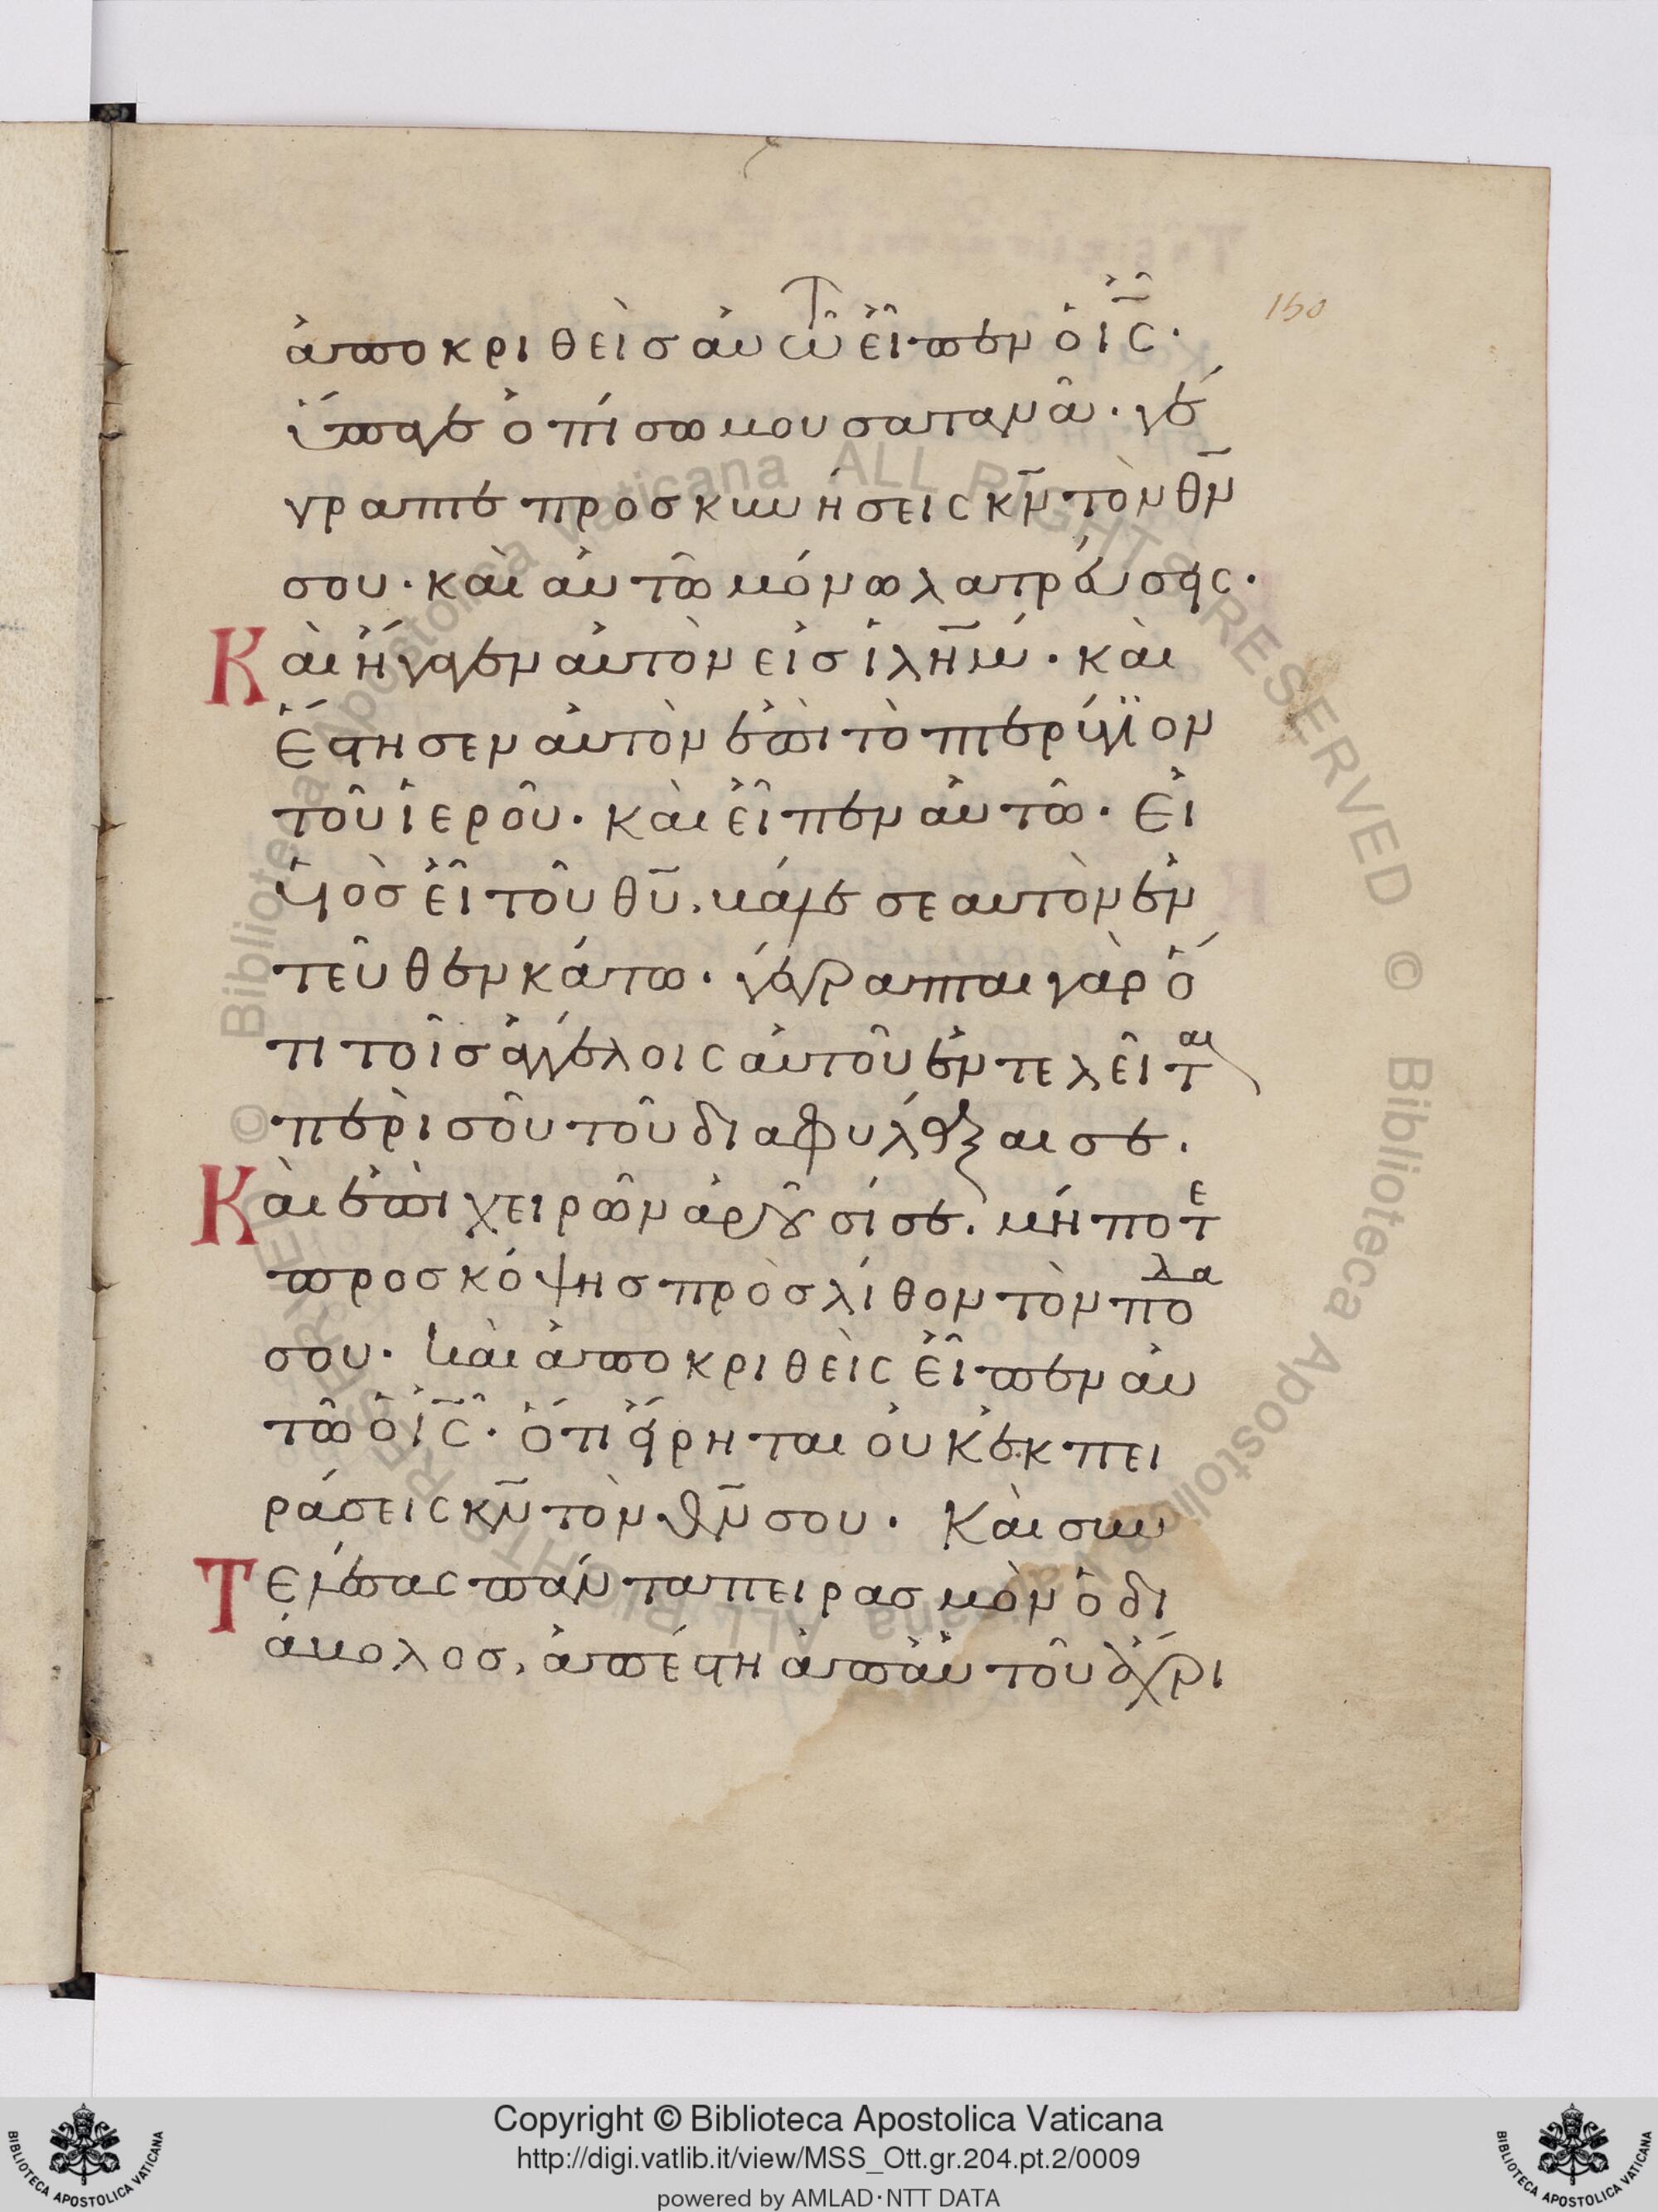 150
ἀποκριθεὶσ αὐτῶ εἶπεν ὁ ἰ̅ς̅·
ὕπαγε ὀπίσω μου σατανᾶ· γέ
γραπται προσκυνήσεις κ̅ν̅ τὸν θ̅ν̅
σου· καὶ αὐτῶ μόνω λατρεύσεις·
Καὶ ἤγαγεν αὐτὸν εἰσ ἱλη̅μ· καὶ
ἔστησεν αὐτὸν ἐπὶ τὸ πτερύγϊον
τοῦ ἱεροῦ· καὶ εἶπεν αὐτῶ· Εἰ
υἱὸσ εἶ τοῦ θ̅υ̅. βάλε σεαυτὸν ἐν
τεῦθεν κάτω· γέγραπται γὰρ ὅ
τι τοῖσ ἀγγέλοις αὐτοῦ ἐντελεῖται
περὶ σοῦ τοῦ διαφυλάξαι σε.
Καὶ ἐπὶ χειρῶν ἀροῦσί σε. μήποτε
προσκόψησ πρὸσ λίθον τὸν πόλα
σου· καὶ ἀποκριθεὶς εἶπεν αὐ
τῶ ὁ ἰ̅ς̅· ὅτι εἴρηται οὐκ ἐκπει
ράσεις κ̅ν̅ τὸν θ̅ν̅ σου· Καὶ συν
Τελέσας πάντα πειρασμὸν ὁ δι
άβολοσ, ἀπέστη ἀπ' αὐτοῦ ἄχρι
© Biblioteca Apostolica Vaticana ALL RIGHTS RESERVED © Biblioteca Apostolica Vaticana ALL RIGHTS RESERVED
Copyright © Biblioteca Apostolica Vaticana
http://digi.vatlib.it/view/MSS_Ott.gr.204.pt.2/0009
powered by AMLAD·NTT DATA
BIBLIOTECA APOSTOLICA VATICANA
BIBLIOTECA APOSTOLICA VATICANA